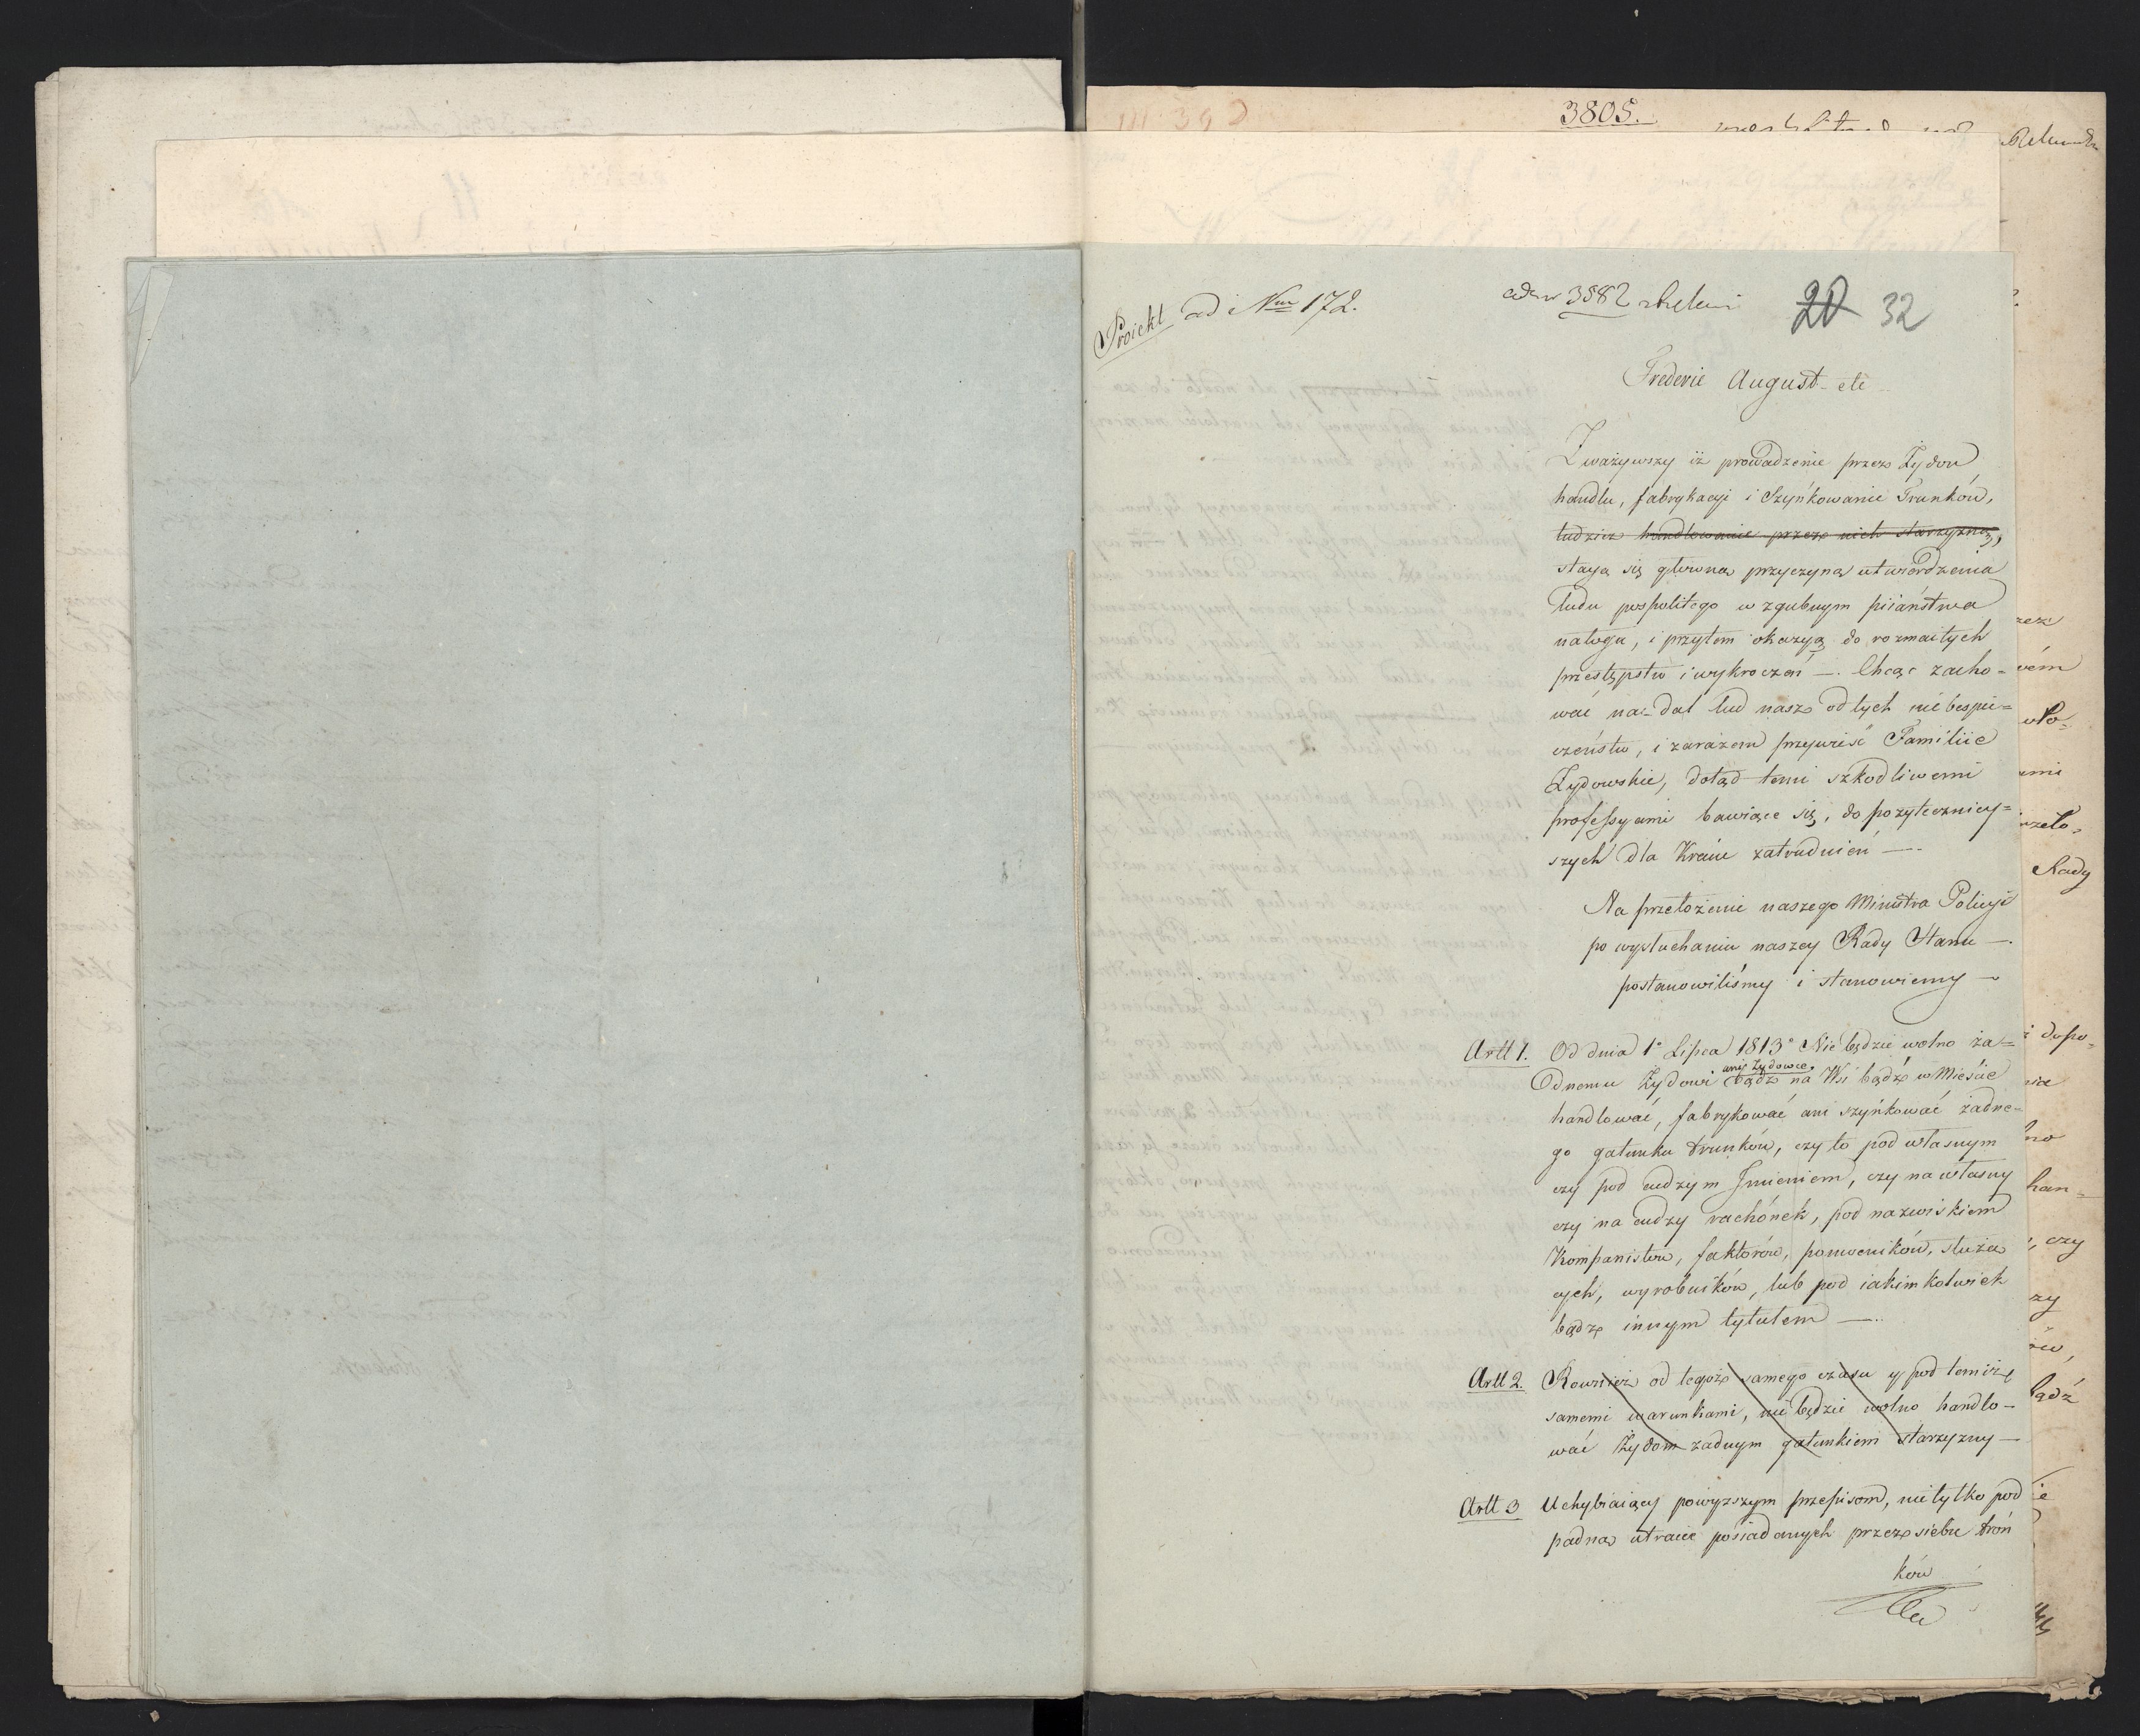 3805.
Proiekt ad Nrm 172.
3582
20 32
Frederic August etc
Zważywszy iż prowadzenie przez Żydow
handlu, fabrykacyi i Szyńkowanie Trunków,
tudzież handlowanie przez nich starzyzną,
staią się głowną przyczyną utwierdzenia
ludu pospolitego w zgubnym piiaństwa
nałogu, i przytem okazyą do rozmaitych
przestępstw i wykroczeń —. Chcąc zacho-
wać na-dal lud nasz od tych niebespie=
czeństw, i zarazem przywieść Familiie
Żydowskie, dotąd temi szkodliwemi
professyami bawiące się, do pożyteczniey=
szych dla Kraiu zatrudnień —.
Na przełożenie naszego Ministra Policyi
po wysłuchaniu naszey Rady Stanu —.
postanowiliśmy i stanowiemy —
Artt 1. Od dnia 1° Lipca 1813° Nie będzie wolno ża=
ani Żydowce
dnemu Żydowi bądź na Wsi bądź w Mieście
handlować, fabrykować ani szyńkować żadne=
go gatunku trunków, czy to pod własnym
czy pod cudzym Jmieniem, czy na własny
czy na cudzy rachónek, pod nazwiskiem
Kompanistow, faktorów, pomocników, służą
cych, wyrobników, lub pod iakimkolwiek
bądź innym tytułem —.
Artt 2. Rownież od tegoż samego czasu y pod temiż
samemi warunkami, nie będzie wolno handlo-
wać Żydom żadnym gatunkiem starzyzny —
Artt 3 Uchybiaiący powyższym przepisom, nietylko pod
padną utracie posiadanych przez siebie trón
ków